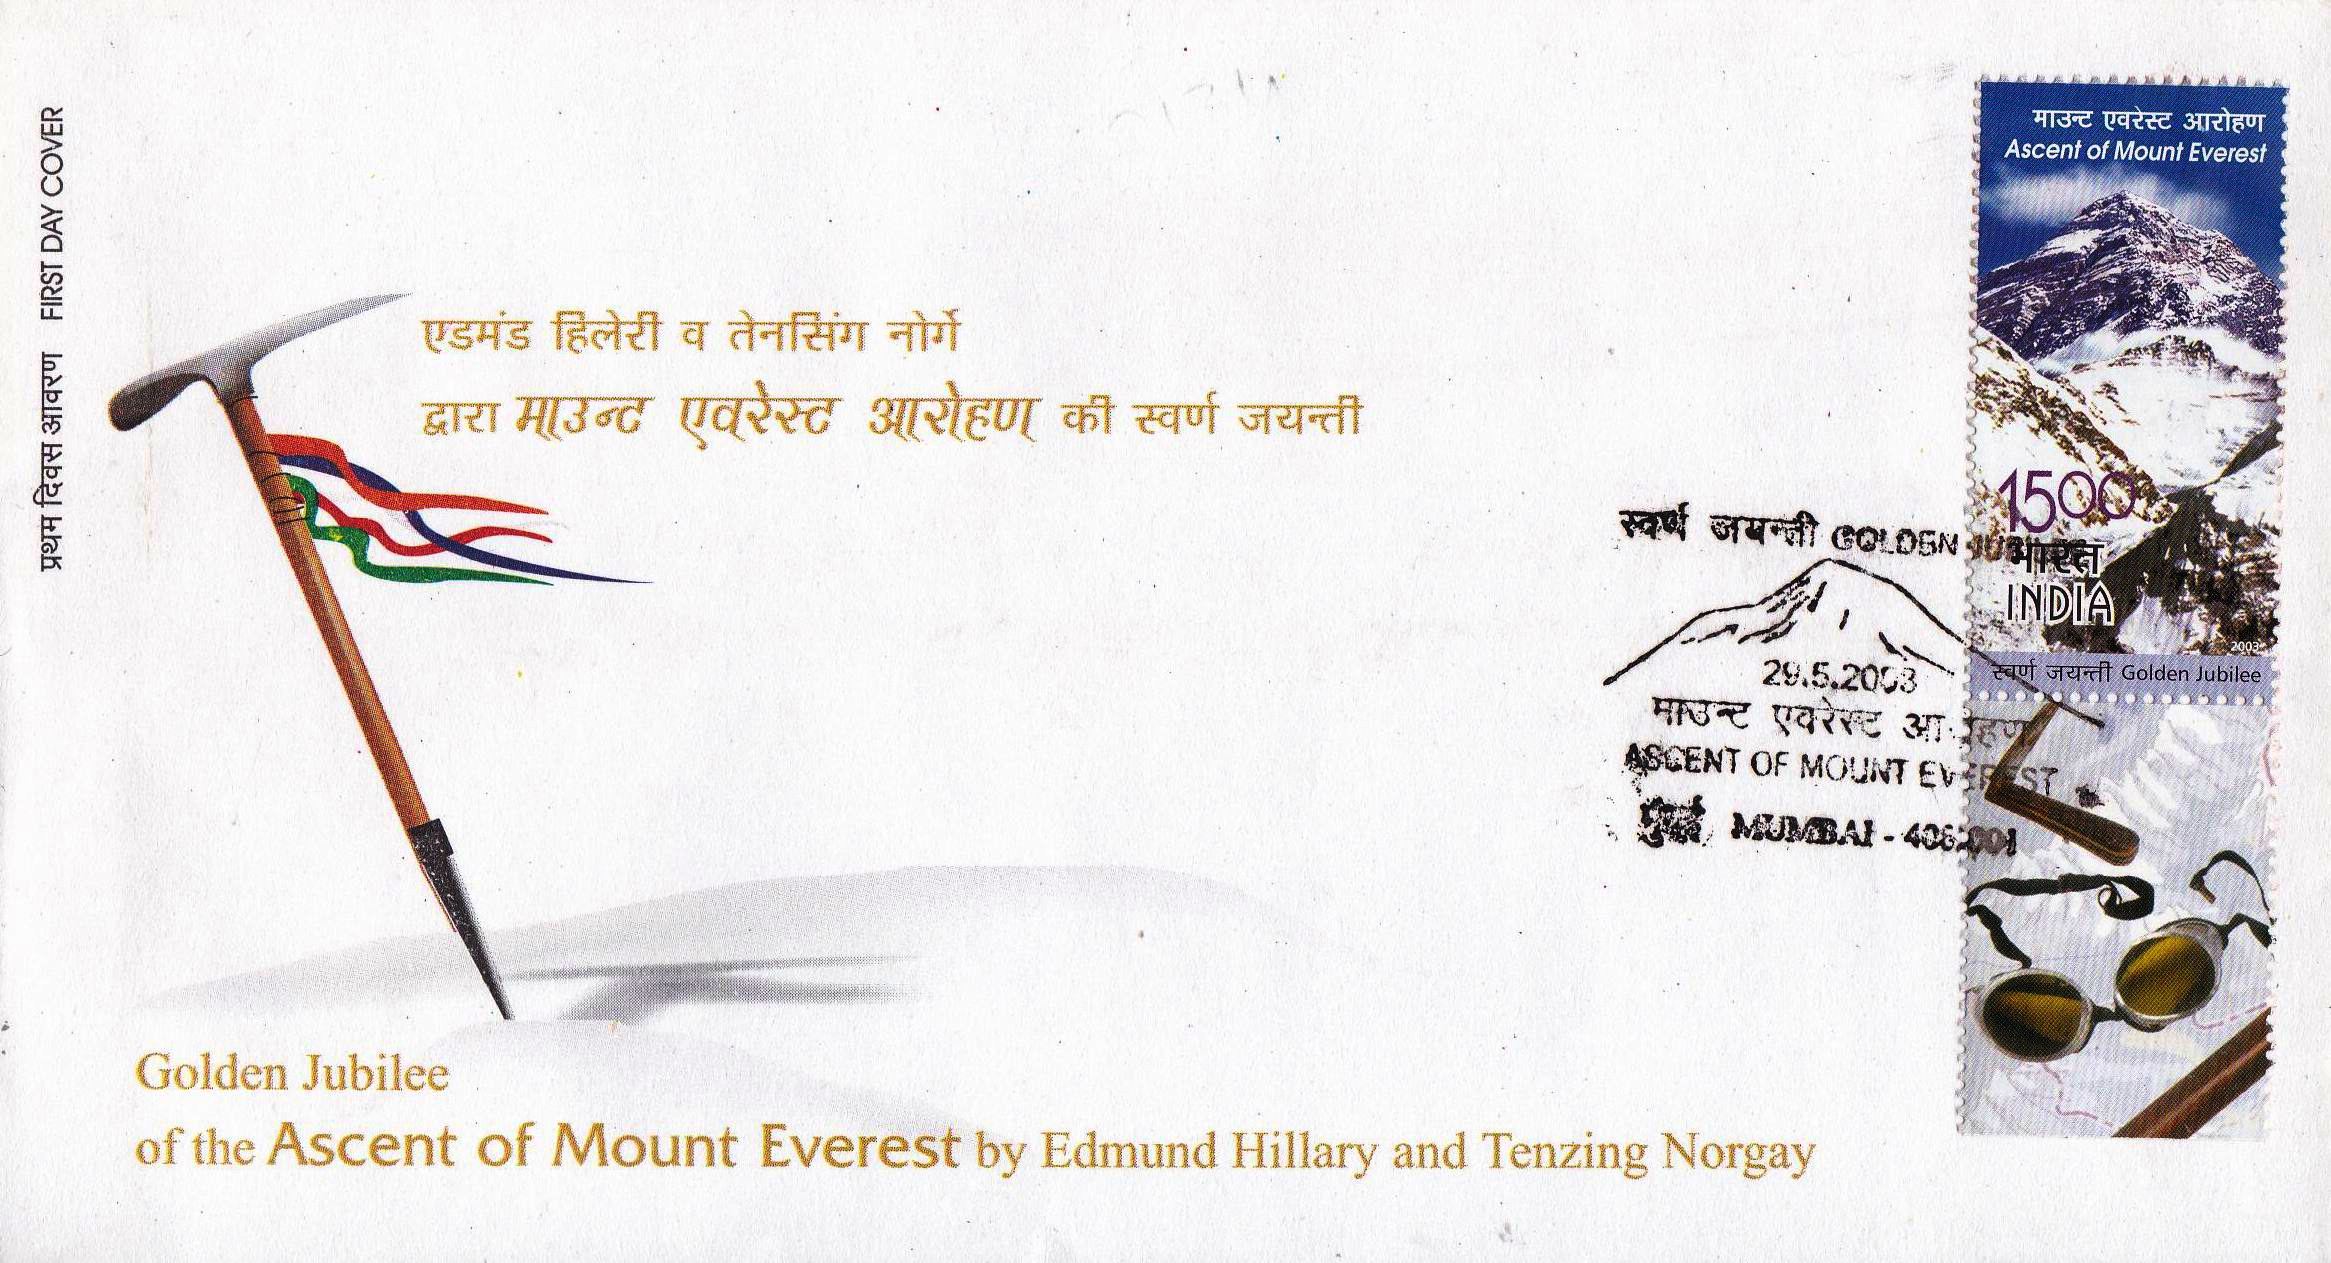 प्रथम दिवस आवरण FIRST DAY COVER
एडमंड हिलेरी व तेनसिंग नोर्गे
द्वारा माउन्ट एवरेस्ट आरोहण की स्वर्ण जयन्ती
माउन्ट एवरेस्ट आरोहण
Ascent of Mount Everest
1500
भारत
INDIA
2003
स्वर्ण जयन्ती Golden Jubilee
स्वर्ण जयन्ती GOLDEN
29.5.2003
माउन्ट एवरेस्ट आरोहण
ASCENT OF MOUNT EVEREST
MUMBAI -
Golden Jubilee
of the Ascent of Mount Everest by Edmund Hillary and Tenzing Norgay